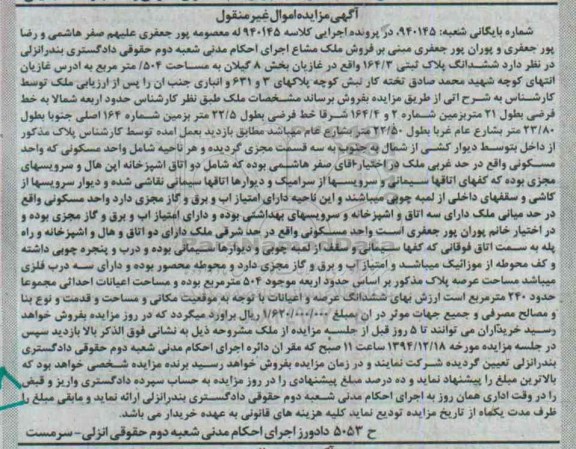 آگهی مزایده اموال غیر منقول
شماره بایگانی شعبه: ۹۴۰۱۴۵، در پرونده اجرایی کلاسه ۹۴۰۱۴۵ له معصومه پور جعفری علیهم صفر هاشمی و رضا
پور جعفری و پوران پور جعفری مبنی بر فروش ملک مشاع اجرای احکام مدنی شعبه دوم حقوقی دادگستری بندرانزلی
در نظر دارد ششدانگ پلاک ثبتی ۱۶۴/۳ واقع در غازیان بخش ۸ گیلان به مساحت ۵۰۴/ متر مربع به آدرس غازیان
انتهای کوچه شهید محمد صادق تخته کار نبش کوچه پلاکهای ۳ و ۶۳۱ و انباری جنب ان را پس از ارزیابی ملک توسط
کارشناس به شرح اتی از طریق مزایده بفروش برساند مشخصات ملک طبق نظر کارشناس حدود اربعه شمالا به خط
فرضی بطول ۲۱ متر بزمین شماره ۲ و ۱۶۴/۴ شرقا خط فرضی بطول ۲۲/۵ متر بزمین شماره ۱۶۴ اصلی جنوبا بطول
۲۳/۸۰ متر بشارع عام غربا بطول ۲۲/۵۰ متر بشارع عام میباشد مطابق بازدید بعمل امده توسط کارشناس پلاک مذکور
از داخل بتوسط دیوار کشی از شمال به جنوب به سه قسمت مجزی گردیده و هر ناحیه شامل واحد مسکونی که واحد
مسکونی واقع در حد غربی ملک در اختیار اقای صفر هاشمی بوده که شامل دو اتاق اشپزخانه این هال و سرویسهای
مجزی بوده که کفهای اتاقها سیمانی و سرویسها از سرامیک و دیوارها اتاقها سیمانی نقاشی شده و دیوار سرویسها از
کاشی و سقفهای داخلی از لمبه چوبی میباشند و این ناحیه دارای امتیاز اب و برق و گاز مجزی دارد واحد مسکونی واقع
در حد میانی ملک دارای سه اتاق و اشپزخانه و سرویسهای بهداشتی بوده و دارای امتیاز اب و برق و گاز مجزی بوده و
در اختیار خانم پوران پور جعفری است واحد مسکونی واقع در حد شرقی ملک دارای دو اتاق و هال و اشپزخانه و راه
پله به سمت اتاق فوقانی که کفها سیمانی و سقف از لمبه چوبی و دیوارها سیمانی بوده و درب و پنجره چوبی داشته
و کف محوطه از موزائیک میباشد و امتیاز اب و برق و گاز مجزی دارد و محوطه محصور بوده و دارای سه درب فلزی
میباشد مساحت عرصه پلاک مذکور بر اساس حدود اربعه موجود ۵۰۴ مترمربع بوده و مساحت اعیانات احداثی مجموعا
حدود ۲۴۰ مترمربع است ارزش بهای ششدانگ عرصه و اعیانات با توجه به موقعیت مکانی و مساحت و قدمت و نوع بنا
و مصالح مصرفی و جمیع جهات موثر در ان بمبلغ ۱/۶۲۰/۰۰۰/۰۰۰ ریال براورد میگردد که در روز مزایده بفروش خواهد
رسید خریداران می توانند تا ۵ روز قبل از جلسه مزایده از ملک مشروحه ذیل به نشانی فوق الذکر بالا بازدید سپس
در جلسه مزایده مورخه ۱۳۹۴/۱۲/۱۸ ساعت ۱۱ صبح که مقر ان دائره اجرای احکام مدنی شعبه دوم حقوقی دادگستری
بندرانزلی تعیین گردیده شرکت نمایند و در زمان مزایده بفروش خواهد رسید برنده مزایده شخصی خواهد بود که
بالاترین مبلغ را پیشنهاد نماید و ده درصد مبلغ پیشنهادی را در روز مزایده به حساب سپرده دادگستری واریز و قبض
را در وقت اداری همان روز به اجرای احکام مدنی شعبه دوم حقوقی دادگستری بندرانزلی ارائه نماید و مابقی مبلغ را
ظرف مدت یکماه از تاریخ مزایده تودیع نماید کلیه هزینه های قانونی به عهده خریدار می باشد.
ح ۵۰۵۳ دادورز اجرای احکام مدنی شعبه دوم حقوقی انزلی- سرمست